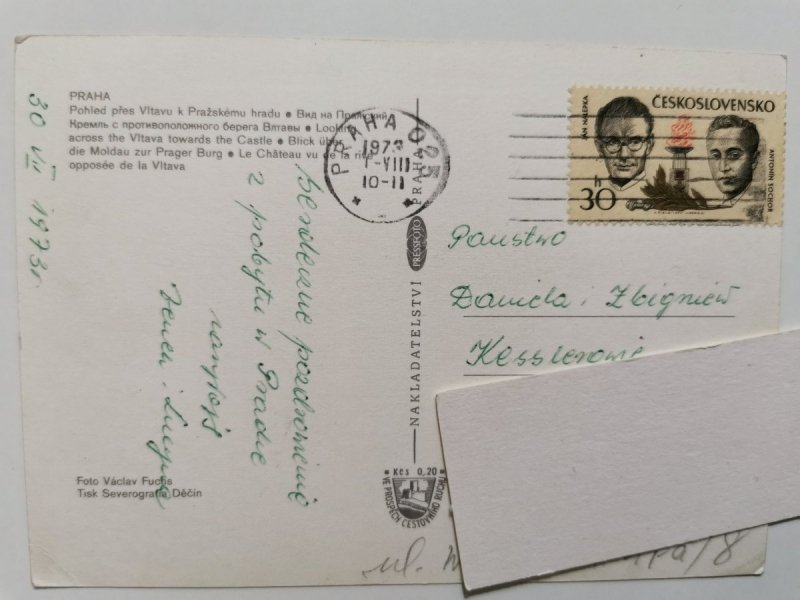 PRAHA
Pohled přes Vltavu k Pražskému hradu • Вид на Пражский
Кремль с противоположного берега Влтавы • Looking
across the Vltava towards the Castle • Blick über
die Moldau zur Prager Burg • Le Château vu de la rive
opposée de la Vltava
30 VII 1973r
Serdeczne pozdrowienia
z pobytu w Pradze
Foto Václav Fuchs
Tisk Severografia Děčín
PRAHA 025
1973
1-VIII
10-11
NAKLADATELSTVÍ PRESSFOTO PRAHA
Kčs 0,20
VE PROSPĚCH CESTOVNÍHO RUCHU
JAN NÁLEPKA
ČESKOSLOVENSKO
ANTONÍN SOCHOR
30 h
Państwo
Daniela i Zbigniew
Kesslerowie
ul.
/8